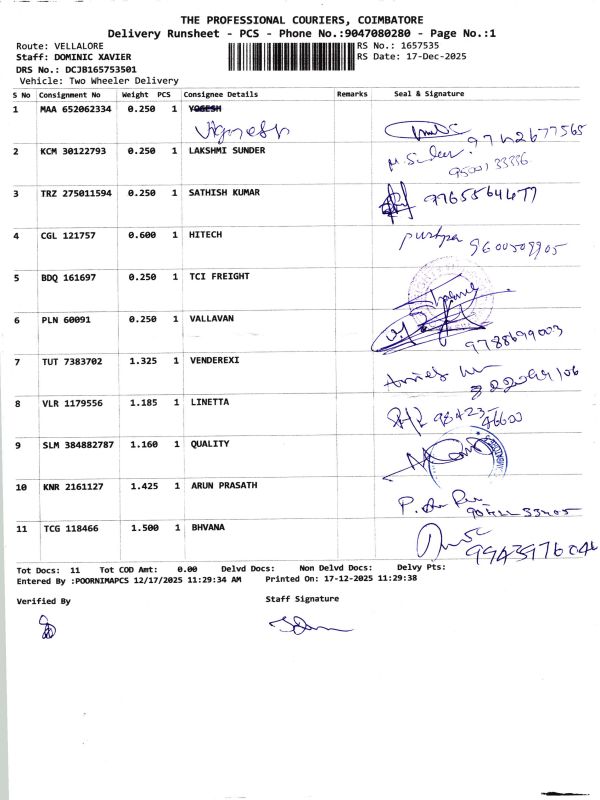 THE PROFESSIONAL COURIERS, COIMBATORE
Delivery Runsheet - PCS - Phone No.:9047080280 - Page No.:1
Route: VELLALORE RS No.: 1657535
Staff: DOMINIC XAVIER RS Date: 17-Dec-2025
DRS No.: DCJB165753501
Vehicle: Two Wheeler Delivery
S No Consignment No Weight PCS Consignee Details Remarks Seal & Signature
1 MAA 652062334 0.250 1 YOGESH
Vignesh
2 KCM 30122793 0.250 1 LAKSHMI SUNDER M. Sunder
9500133336
3 TRZ 275011594 0.250 1 SATHISH KUMAR
4 CGL 121757 0.600 1 HITECH pushpa 9600509905
5 BDQ 161697 0.250 1 TCI FREIGHT
6 PLN 60091 0.250 1 VALLAVAN
9788699003
7 TUT 7383702 1.325 1 VENDEREXI
8 VLR 1179556 1.185 1 LINETTA 98423
46600
9 SLM 384882787 1.160 1 QUALITY
10 KNR 2161127 1.425 1 ARUN PRASATH
11 TCG 118466 1.500 1 BHVANA
9943976046
Tot Docs: 11 Tot COD Amt: 0.00 Delvd Docs: Non Delvd Docs: Delvy Pts:
Entered By :POORNIMAPCS 12/17/2025 11:29:34 AM Printed On: 17-12-2025 11:29:38
Verified By Staff Signature